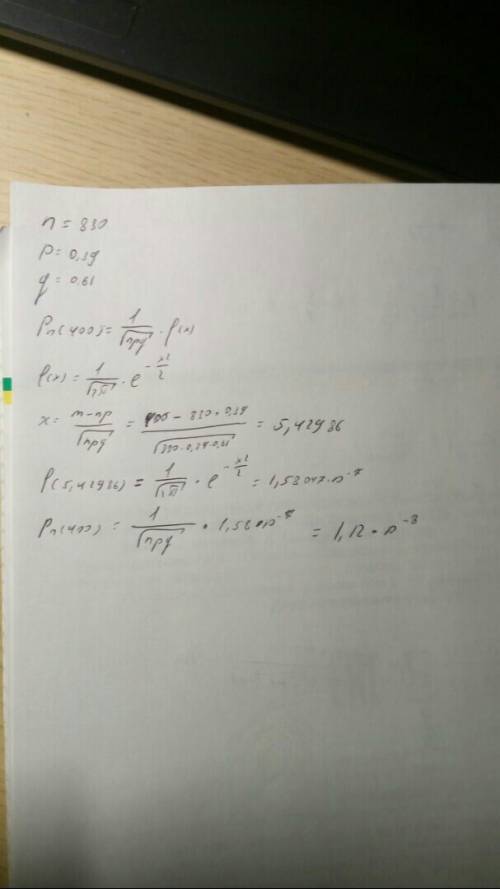 n = 830
p = 0,39
q = 0.61
Pn(400) = 1/√npq · φ(x)
φ(x) = 1/√2π · e^(-x²/2)
x = m-np/√npq = 400 - 830 · 0,39/√830 · 0,39 · 0,61 = 5,42986
φ(5,42986) = 1/√2π · e^(-x²/2) = 1,5804 · 10^-7
Pn(400) = 1/√npq · 1,58 · 10^-7 = 1,12 · 10^-8